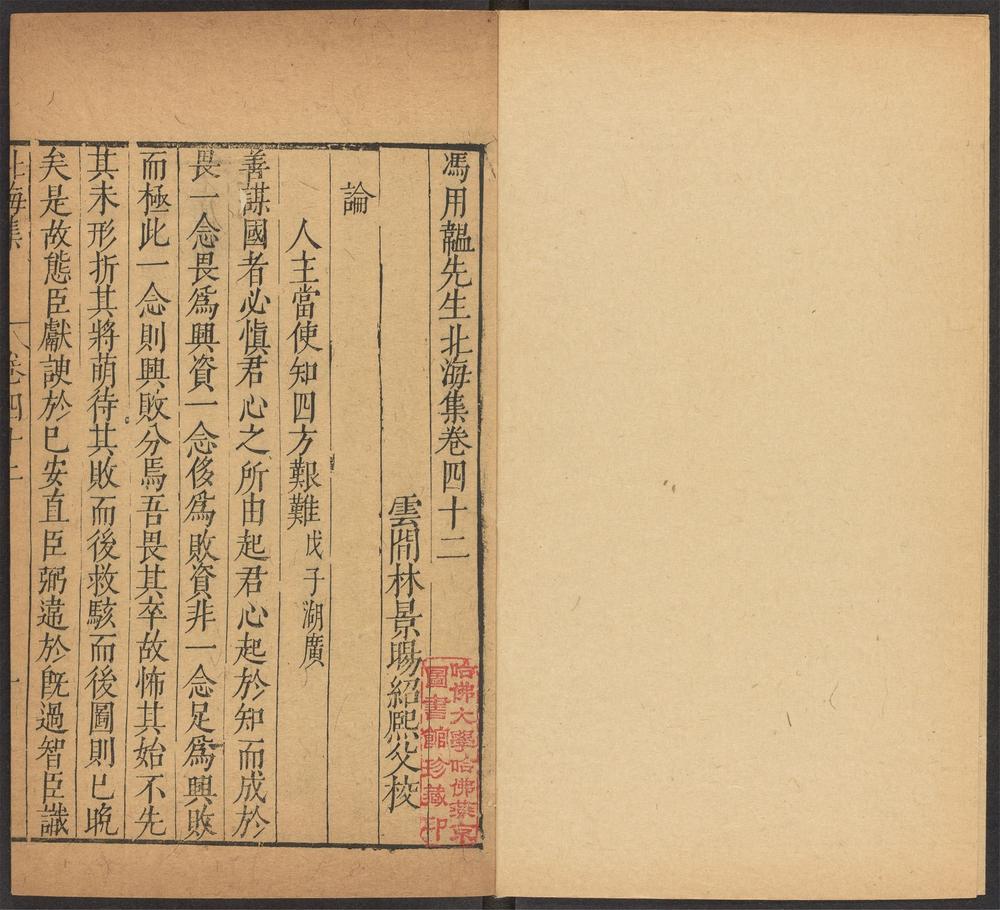 馮用韞先生北海集卷四十二
雲間林景暘紹熙父校
論
人主當使知四方艱難 戊子湖廣
善謀國者必慎君心之所由起君心起於知而成於
畏一念畏爲興資一念侈爲敗資非一念足爲興敗
而極此一念則興敗分焉吾畏其卒故怖其始不先
其未形折其將萌待其敗而後救駭而後圖則已晩
矣是故態臣獻諛於已安直臣弼違於旣過智臣讖
北海集 卷四十二 一
哈佛大學哈佛燕京
圖書館珍藏印